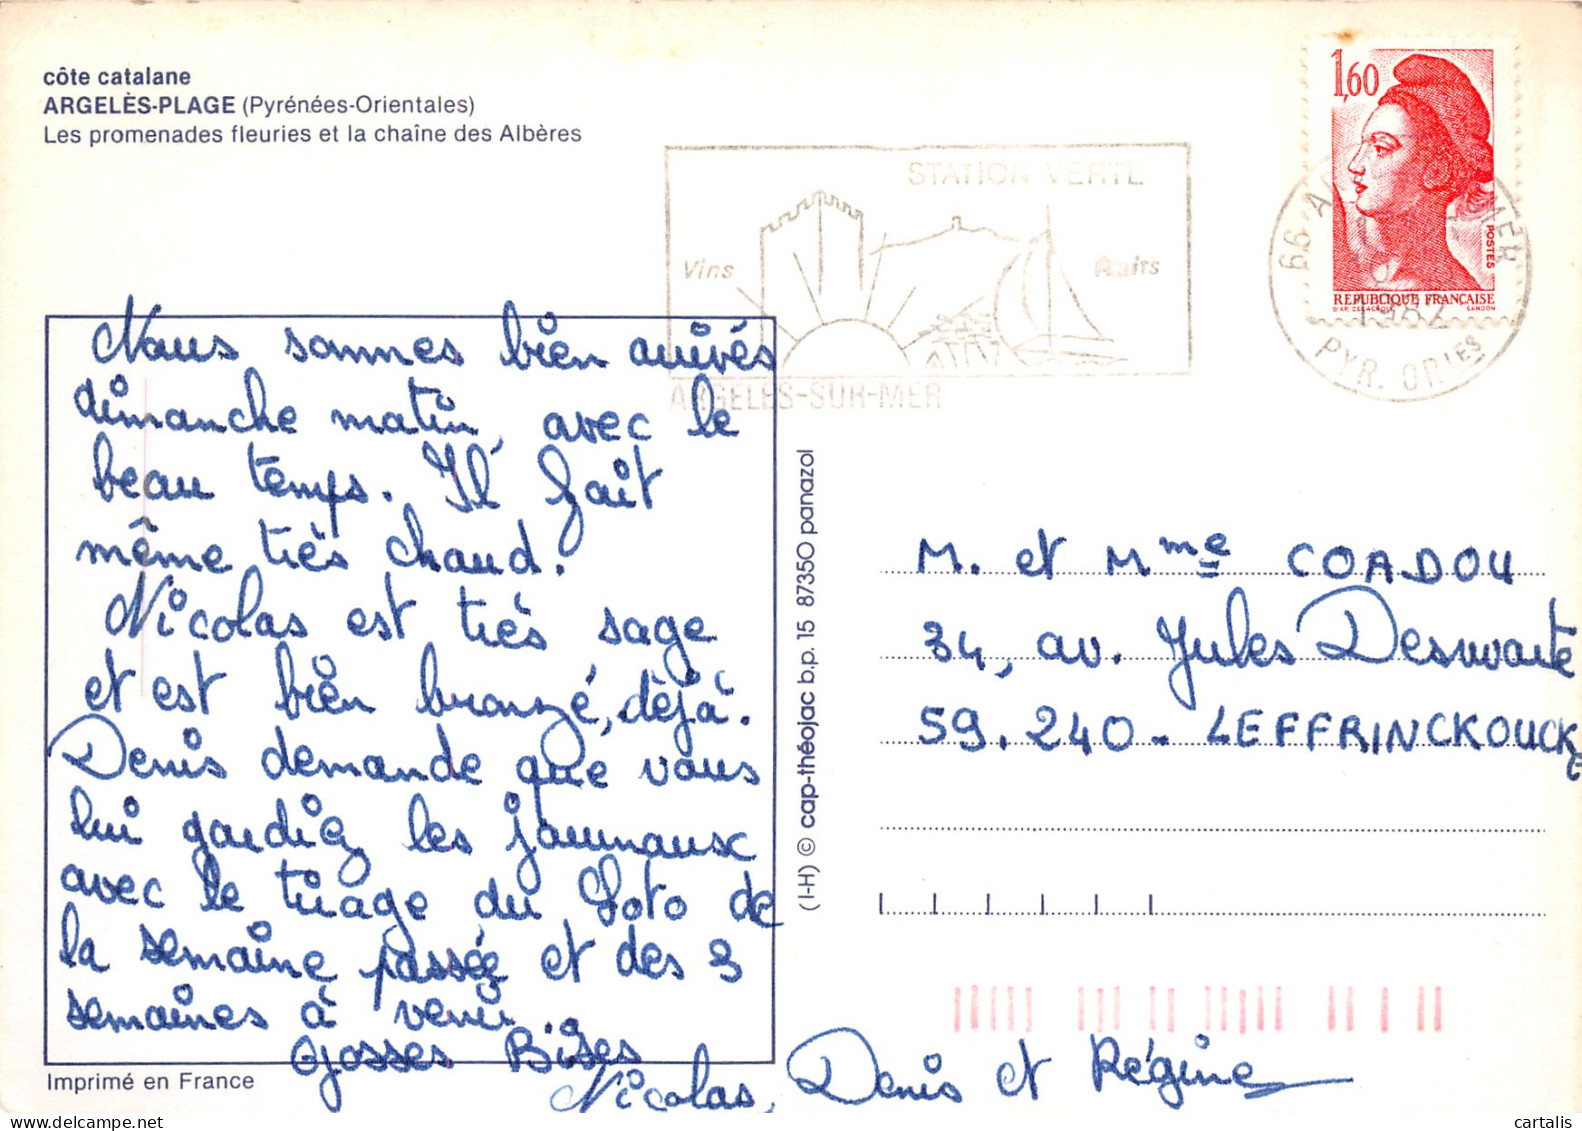 côte catalane
ARGELÈS-PLAGE (Pyrénées-Orientales)
Les promenades fleuries et la chaîne des Albères
1,60
POSTES
REPUBLIQUE FRANÇAISE
D'AP. DELACROIX GANDON
STATION VERTE
Vins Fruits
ARGELES-SUR-MER
66 MER
1982
PYR. ORIES
Nous sommes bien arrivés
dimanche matin, avec le
beau temps. Il fait
même très chaud.
Nicolas est très sage
et est bien bronzé, déjà.
Denis demande que vous
lui gardiez les journaux
avec le tirage du Loto de
la semaine passée et des 3
semaines à venir
Grosses Bises
Nicolas, Denis et Régine
Imprimé en France
(I-H) © cap-théojac b.p. 15 87350 panazol
M. et Mme COADOU
34, av. Jules Deswarte
59.240 - LEFFRINCKOUCKE